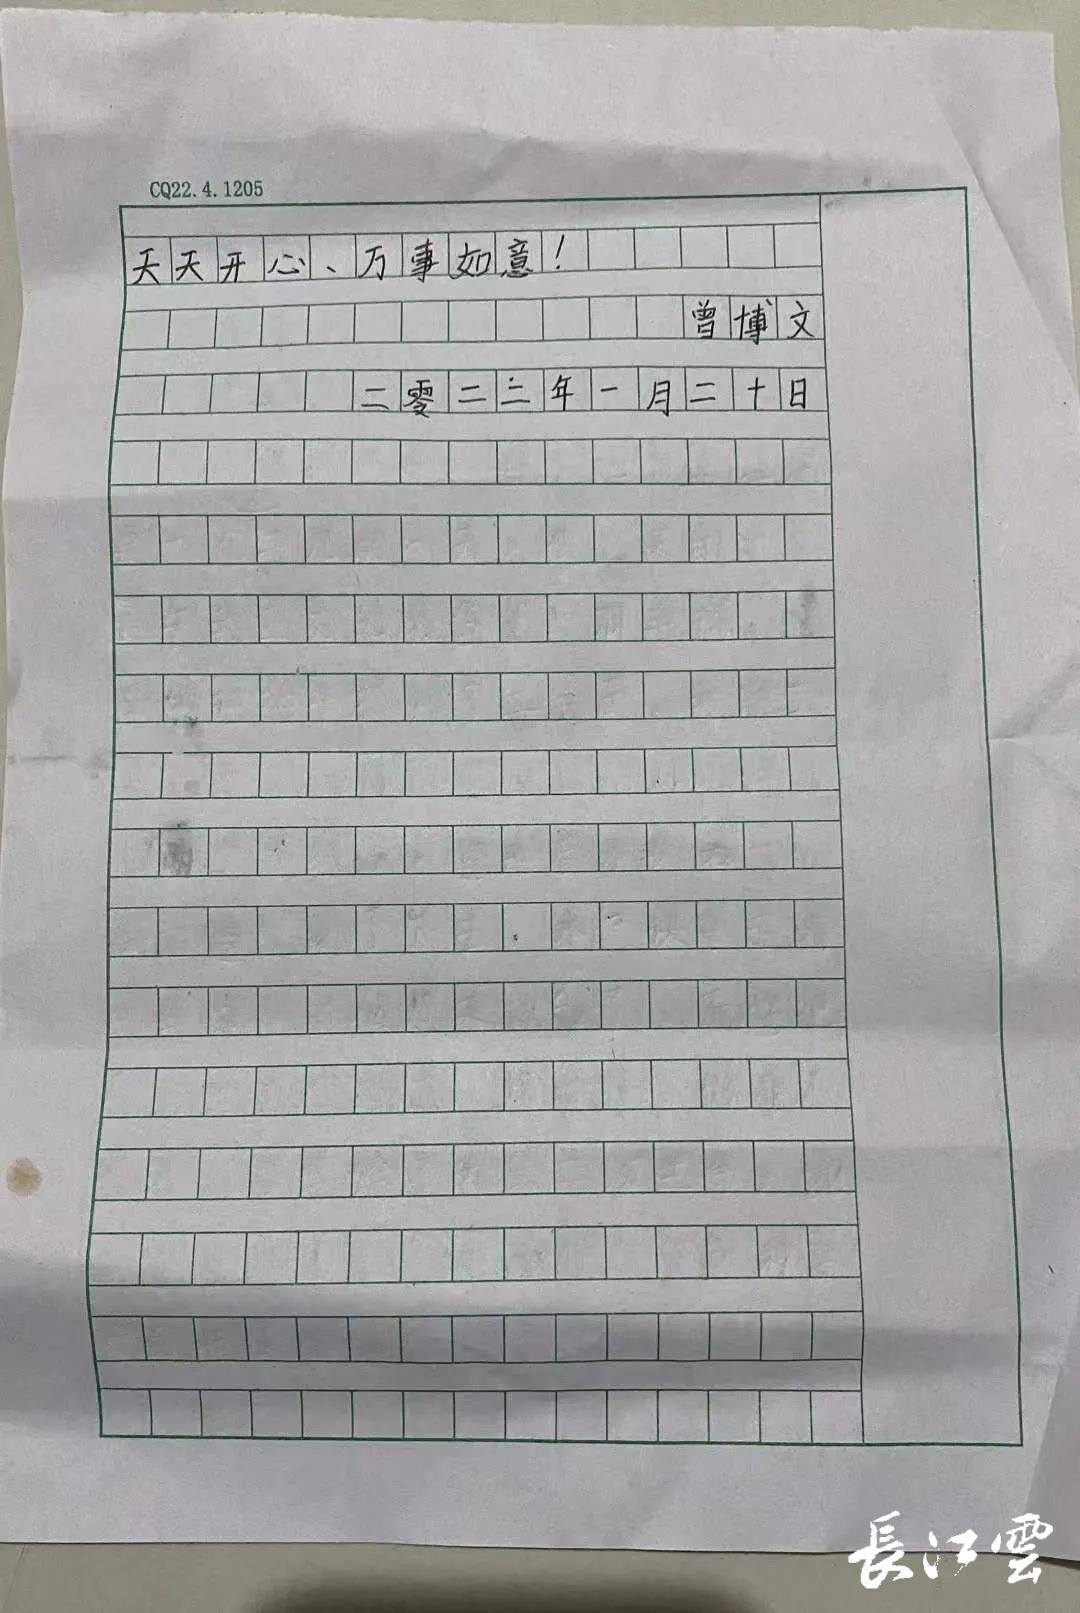 CQ22.4.1205
天天开心、万事如意！
曾博文
二零二二年一月二十日
長江雲